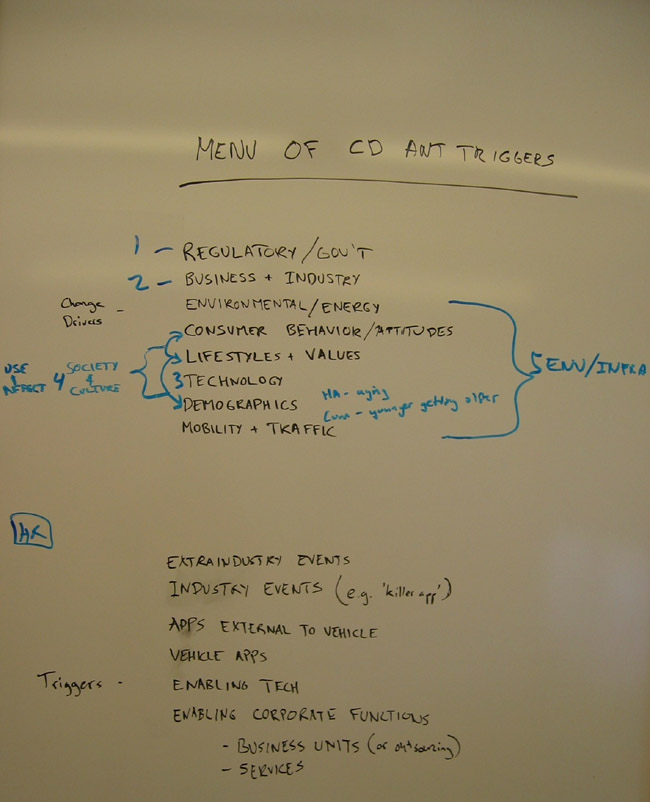 MENU OF CD ANT TRIGGERS
1 - REGULATORY/GOV'T
2 - BUSINESS + INDUSTRY
Change Drivers -
ENVIRONMENTAL/ENERGY
CONSUMER BEHAVIOR/ATTITUDES
LIFESTYLES + VALUES
USE
AFFECT
4 SOCIETY + CULTURE
3 TECHNOLOGY
DEMOGRAPHICS
MA - aging
younger getting older
MOBILITY + TRAFFIC
5 ENV/INFRA
EXTRAINDUSTRY EVENTS
INDUSTRY EVENTS (e.g. 'killer app')
APPS EXTERNAL TO VEHICLE
VEHICLE APPS
Triggers -
ENABLING TECH
ENABLING CORPORATE FUNCTIONS
- BUSINESS UNITS (or outsourcing)
- SERVICES